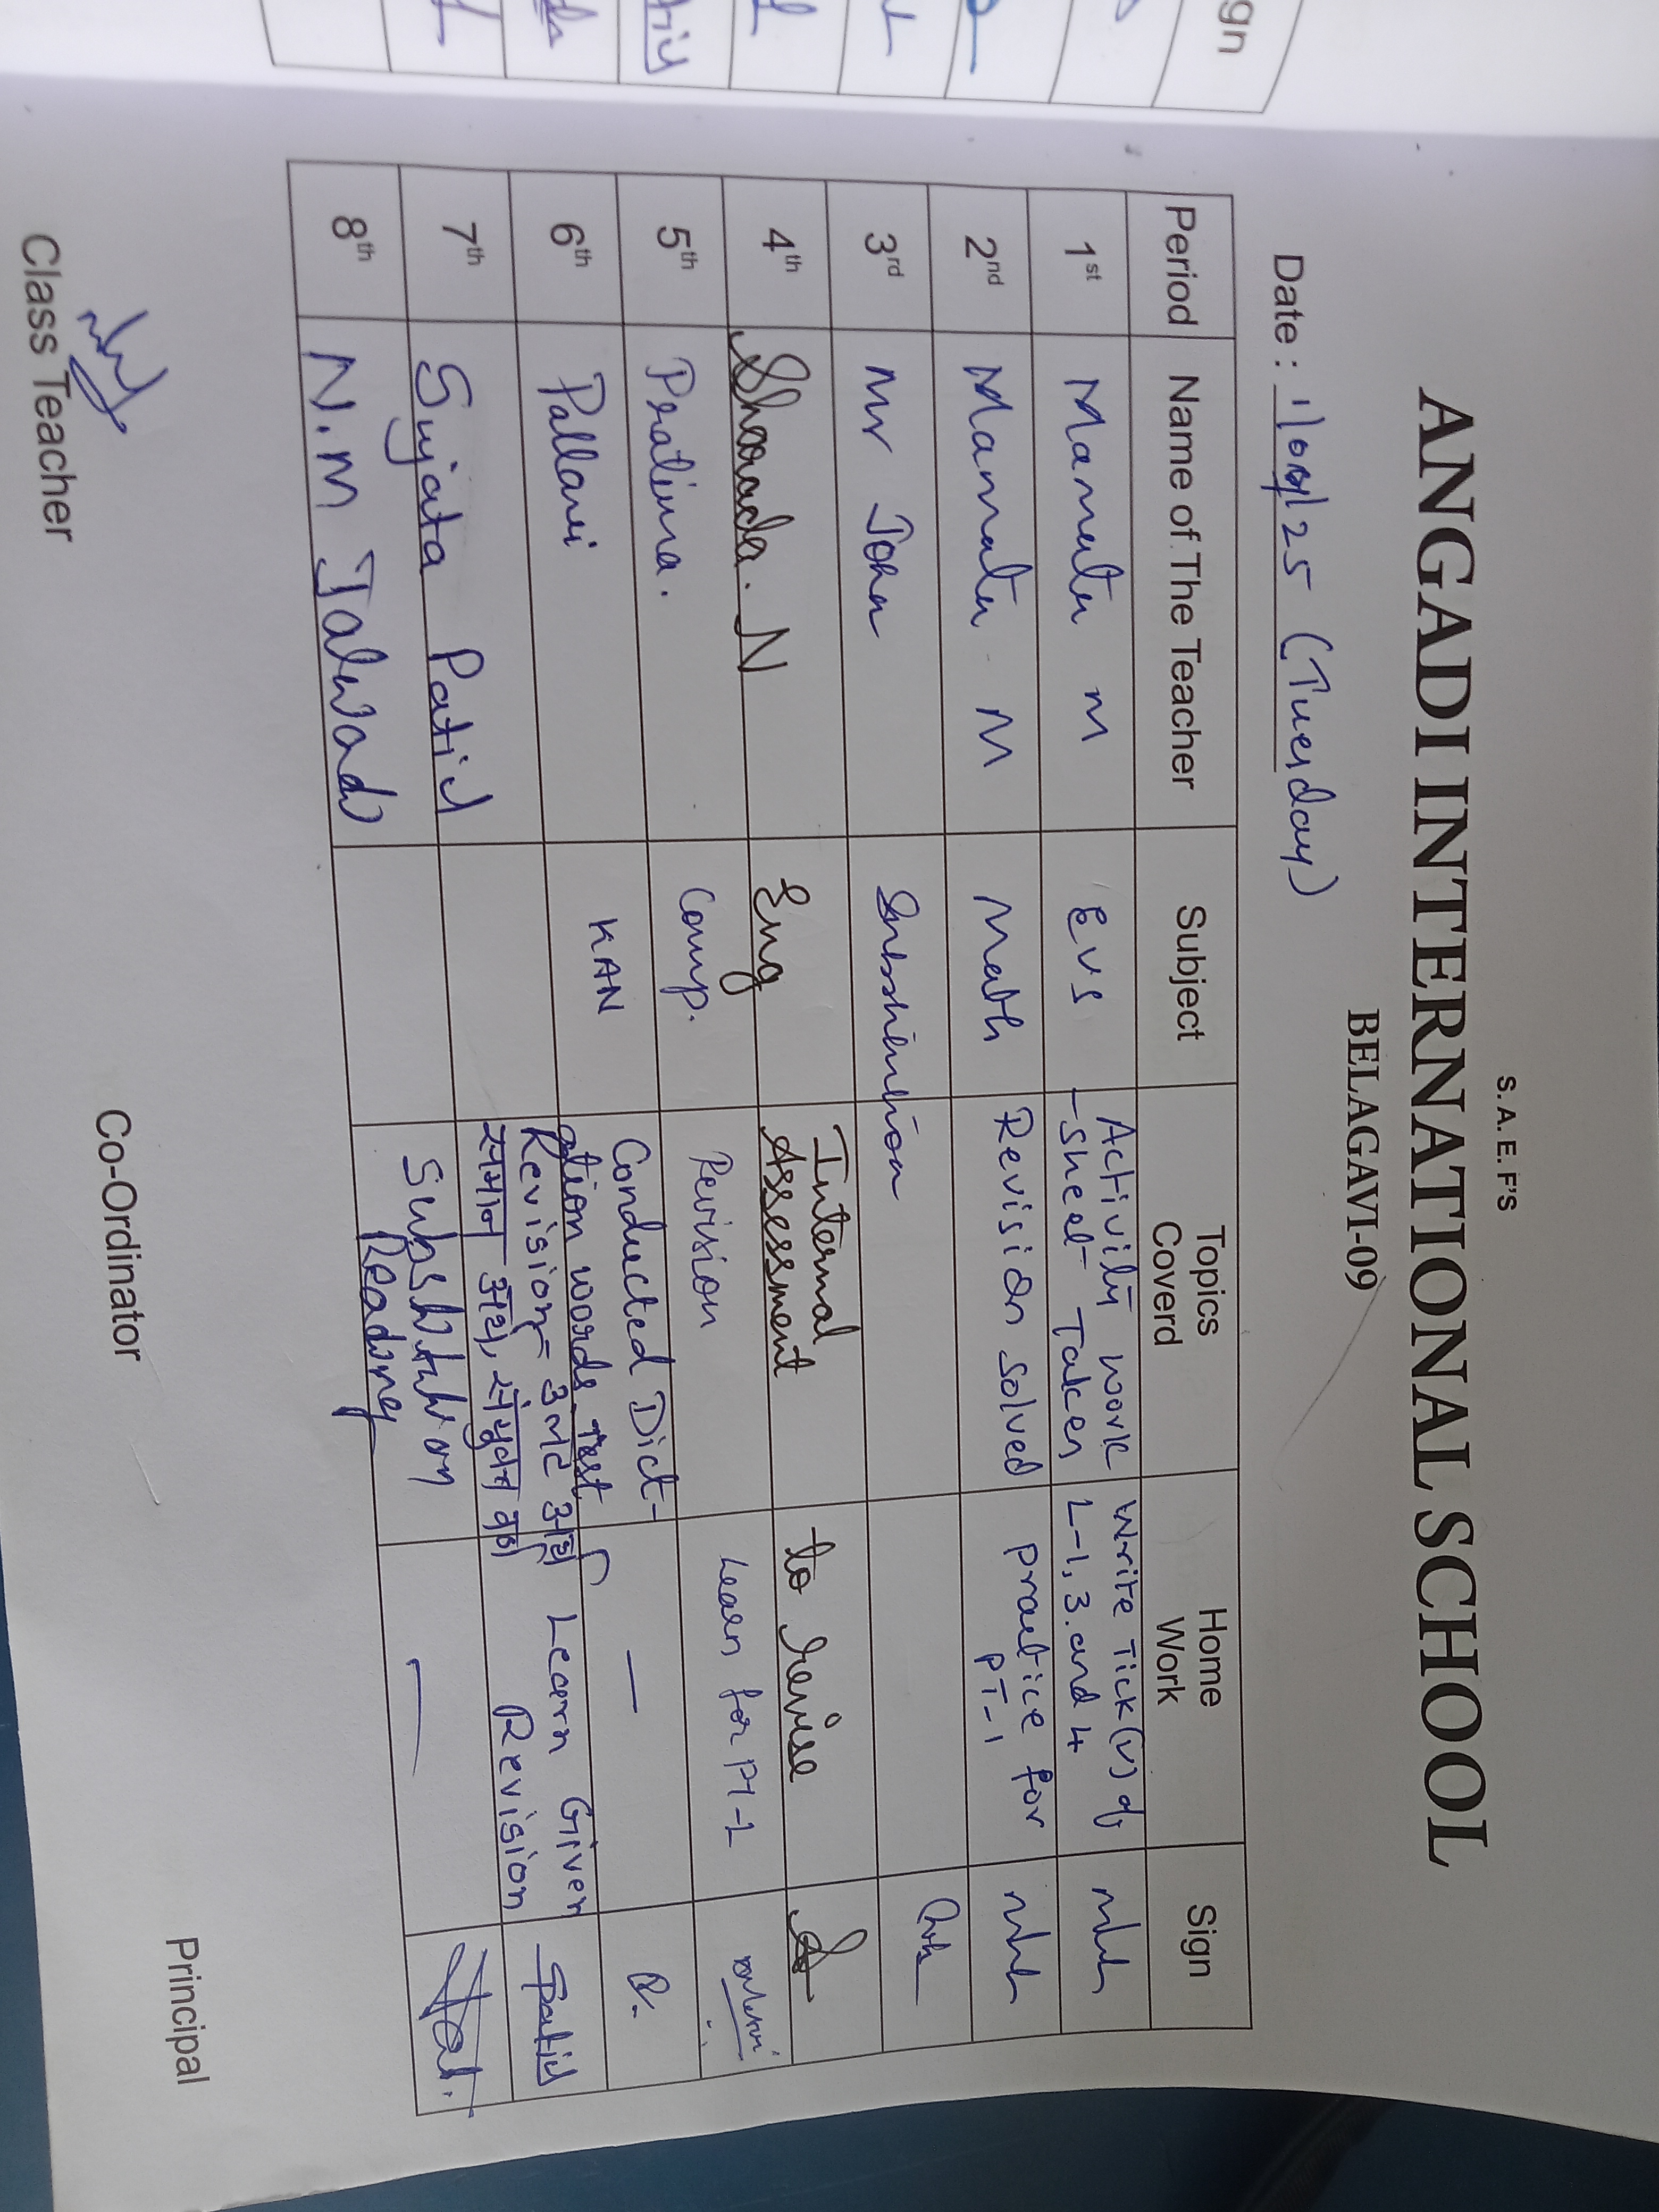 S.A.E.F'S
ANGADI INTERNATIONAL SCHOOL
BELAGAVI-09
Date : (Tuesday)
Period Name of The Teacher Subject Topics Coverd Home Work Sign
1st Mamata M EVS Activity work
-sheet Taken Write Tick(✓) of
L-1, 3. and 4
2nd Mamata M Math Revision solved practice for
PT-1
3rd Mr John
4th Sharada. N Eng Internal
Assessment to revise
5th Pratima. Comp. Revision Learn for PT-1
6th Pallavi KAN Conducted Dict-
ation words test —
7th Sujata Patil Revision - उलट अर्थ
समान अर्थ, संयुक्त Learn Given
Revision Spatil
8th N.M Talwad Substitution
Reading —
Class Teacher Co-Ordinator Principal
gn